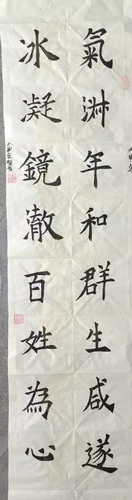 氣淑年和群生咸遂
冰凝鏡澈百姓為心